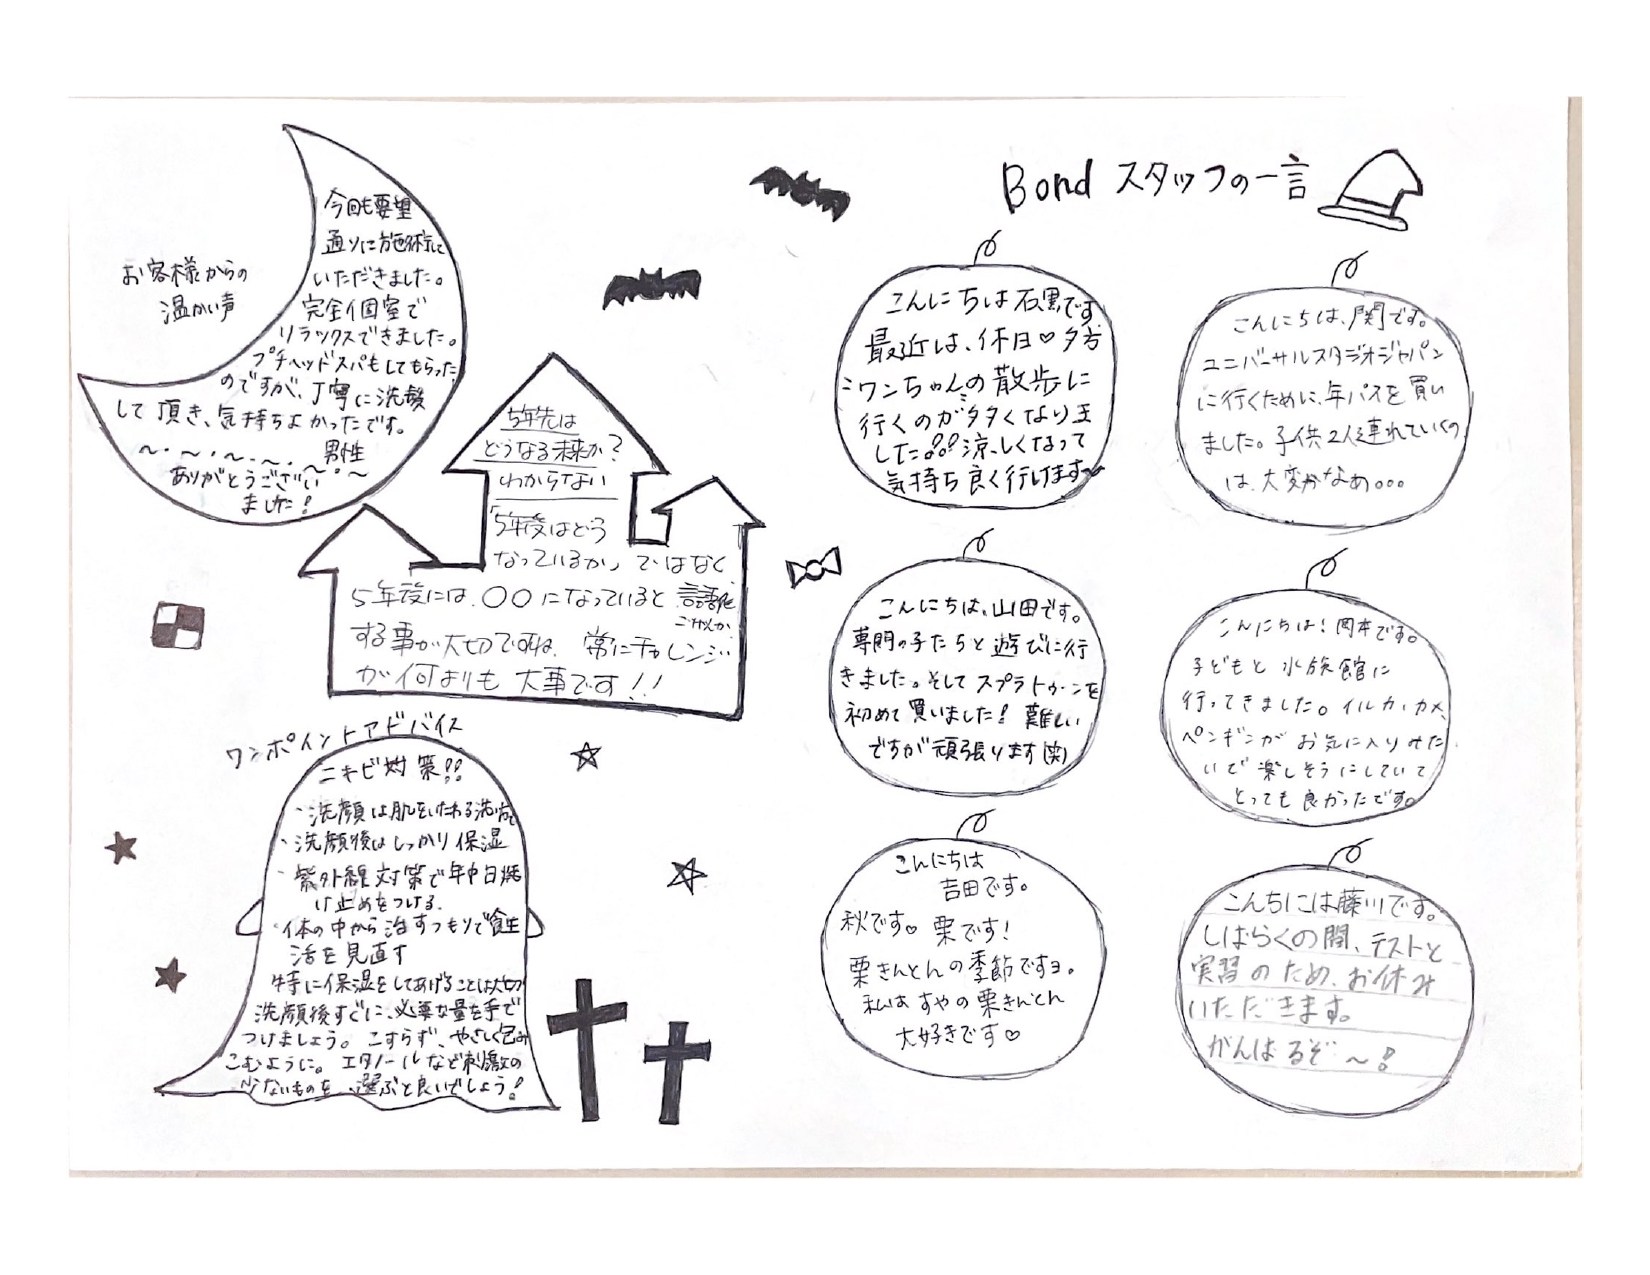 お客様からの
温かい声
今回も要望
通りに施術して
いただきました。
完全個室で
リラックスできました。
プチヘッドスパもしてもらった
のですが、丁寧に洗髪
して頂き、気持ちよかったです。
男性
ありがとうござい
ました!
5年先は
どうなる未来か?
わからない
5年後はどう
なっているか、ではなく
5年後には、〇〇になっていると
する事が大切ですね、常にチャレンジ
が何よりも大事です!!
ワンポイントアドバイス
ニキビ対策!!
・洗顔は肌をいたわる洗い方で
・洗顔後はしっかり保湿
・紫外線対策で年中日焼
け止めをつける。
・体の中から治すつもりで食生
活を見直す
特に保湿をしてあげることは大切
洗顔後すぐに、必要な量を手で
つけましょう。こすらず、やさしく包み
こむように。エタノールなど刺激の
少ないものを、選ぶと良いでしょう!
Bond スタッフの一言
こんにちは石黒です
最近は、休日♡夕方
にワンちゃんの散歩に
行くのが多くなりま
した!!涼しくなって
気持ち良く行けます〜
こんにちは、関です。
ユニバーサルスタジオジャパン
に行くために、年パスを買い
ました。子供2人連れていくの
は、大変かなぁ。。。
こんにちは、山田です。
専門の子たちと遊びに行
きました。そしてスプラトゥーンを
初めて買いました!難しい
ですが頑張ります(笑)
こんにちは!岡本です。
子どもと水族館に
行ってきました。イルカ、カメ、
ペンギンがお気に入りみた
いで楽しそうにしていて
とっても良かったです。
こんにちは
吉田です。
秋です♡栗です!
栗きんとんの季節ですヨ。
私はすやの栗きんとん
大好きです♡
こんちには藤川です。
しばらくの間、テストと
実習のため、お休み
いただきます。
がんばるぞ〜!